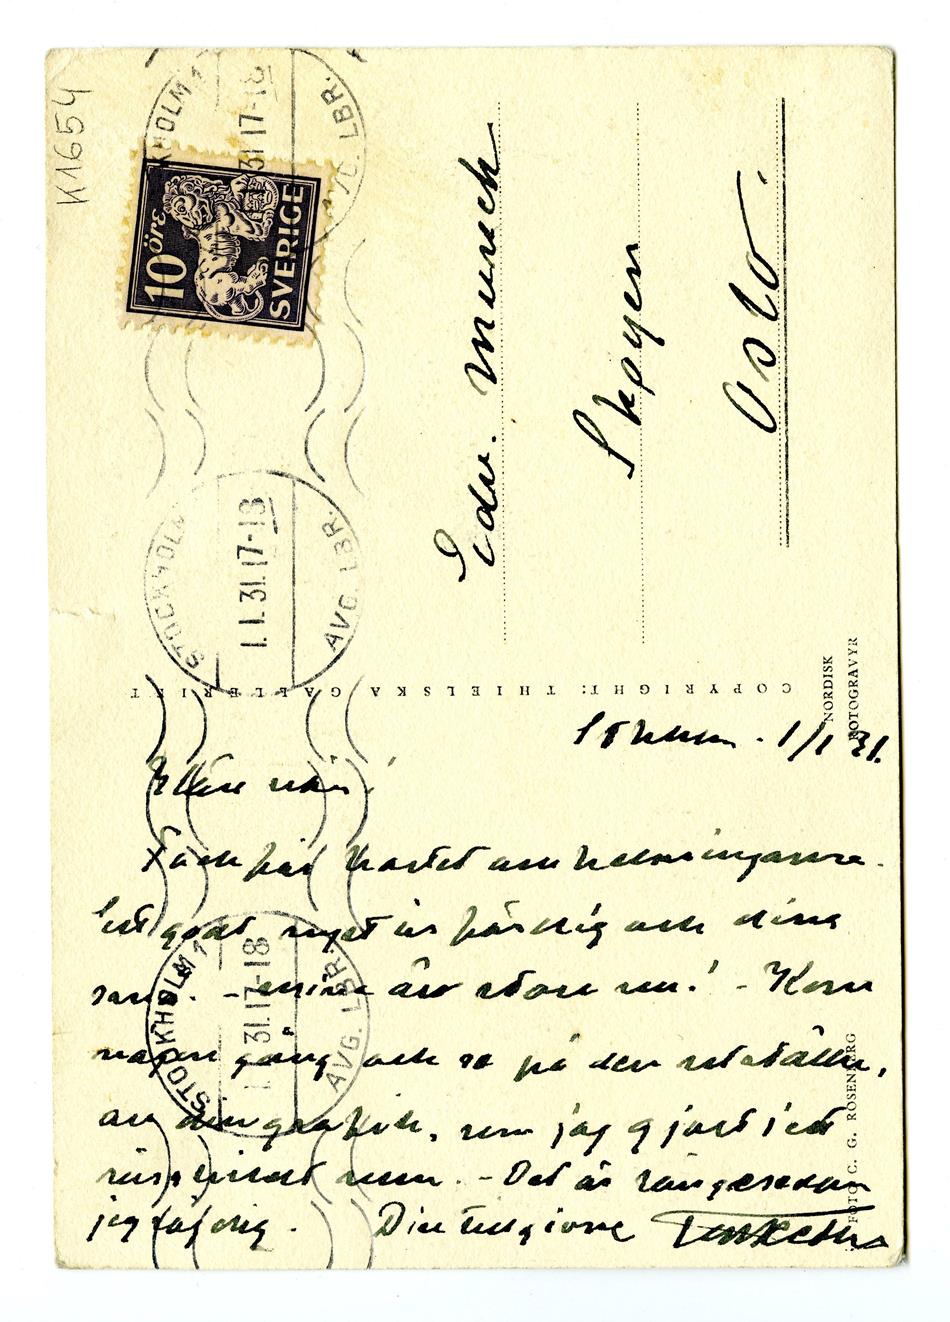 K1654
10 öre
SVERIGE
STOCKHOLM 1
31 17-18
AVG. LBR.
STOCKHOLM
1.1.31.17-18
AVG. LBR.
STOCKHOLM 1
1.1.31.17-18
AVG. LBR.
Edv. Munch
Skøyen
Oslo.
COPYRIGHT: THIELSKA GALLERIET
NORDISK
FOTOGRAVYR
FOTO C. G. ROSENBERG
Sthlm. 1/1 31.
Käre vän!
Tack för kortet och
godt nyt år för dig och dina
små. - mina äro stora nu! - Kom
någon gång och se på den utställn,
av din grafik, som jag gjort i ett
rum. - Det är länge sedan
jag såg dig. Din tillgivne